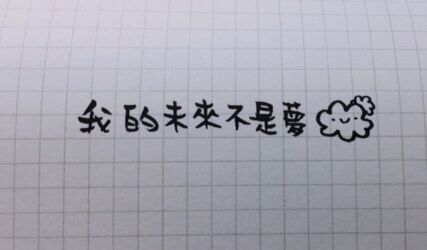 我的未來不是夢